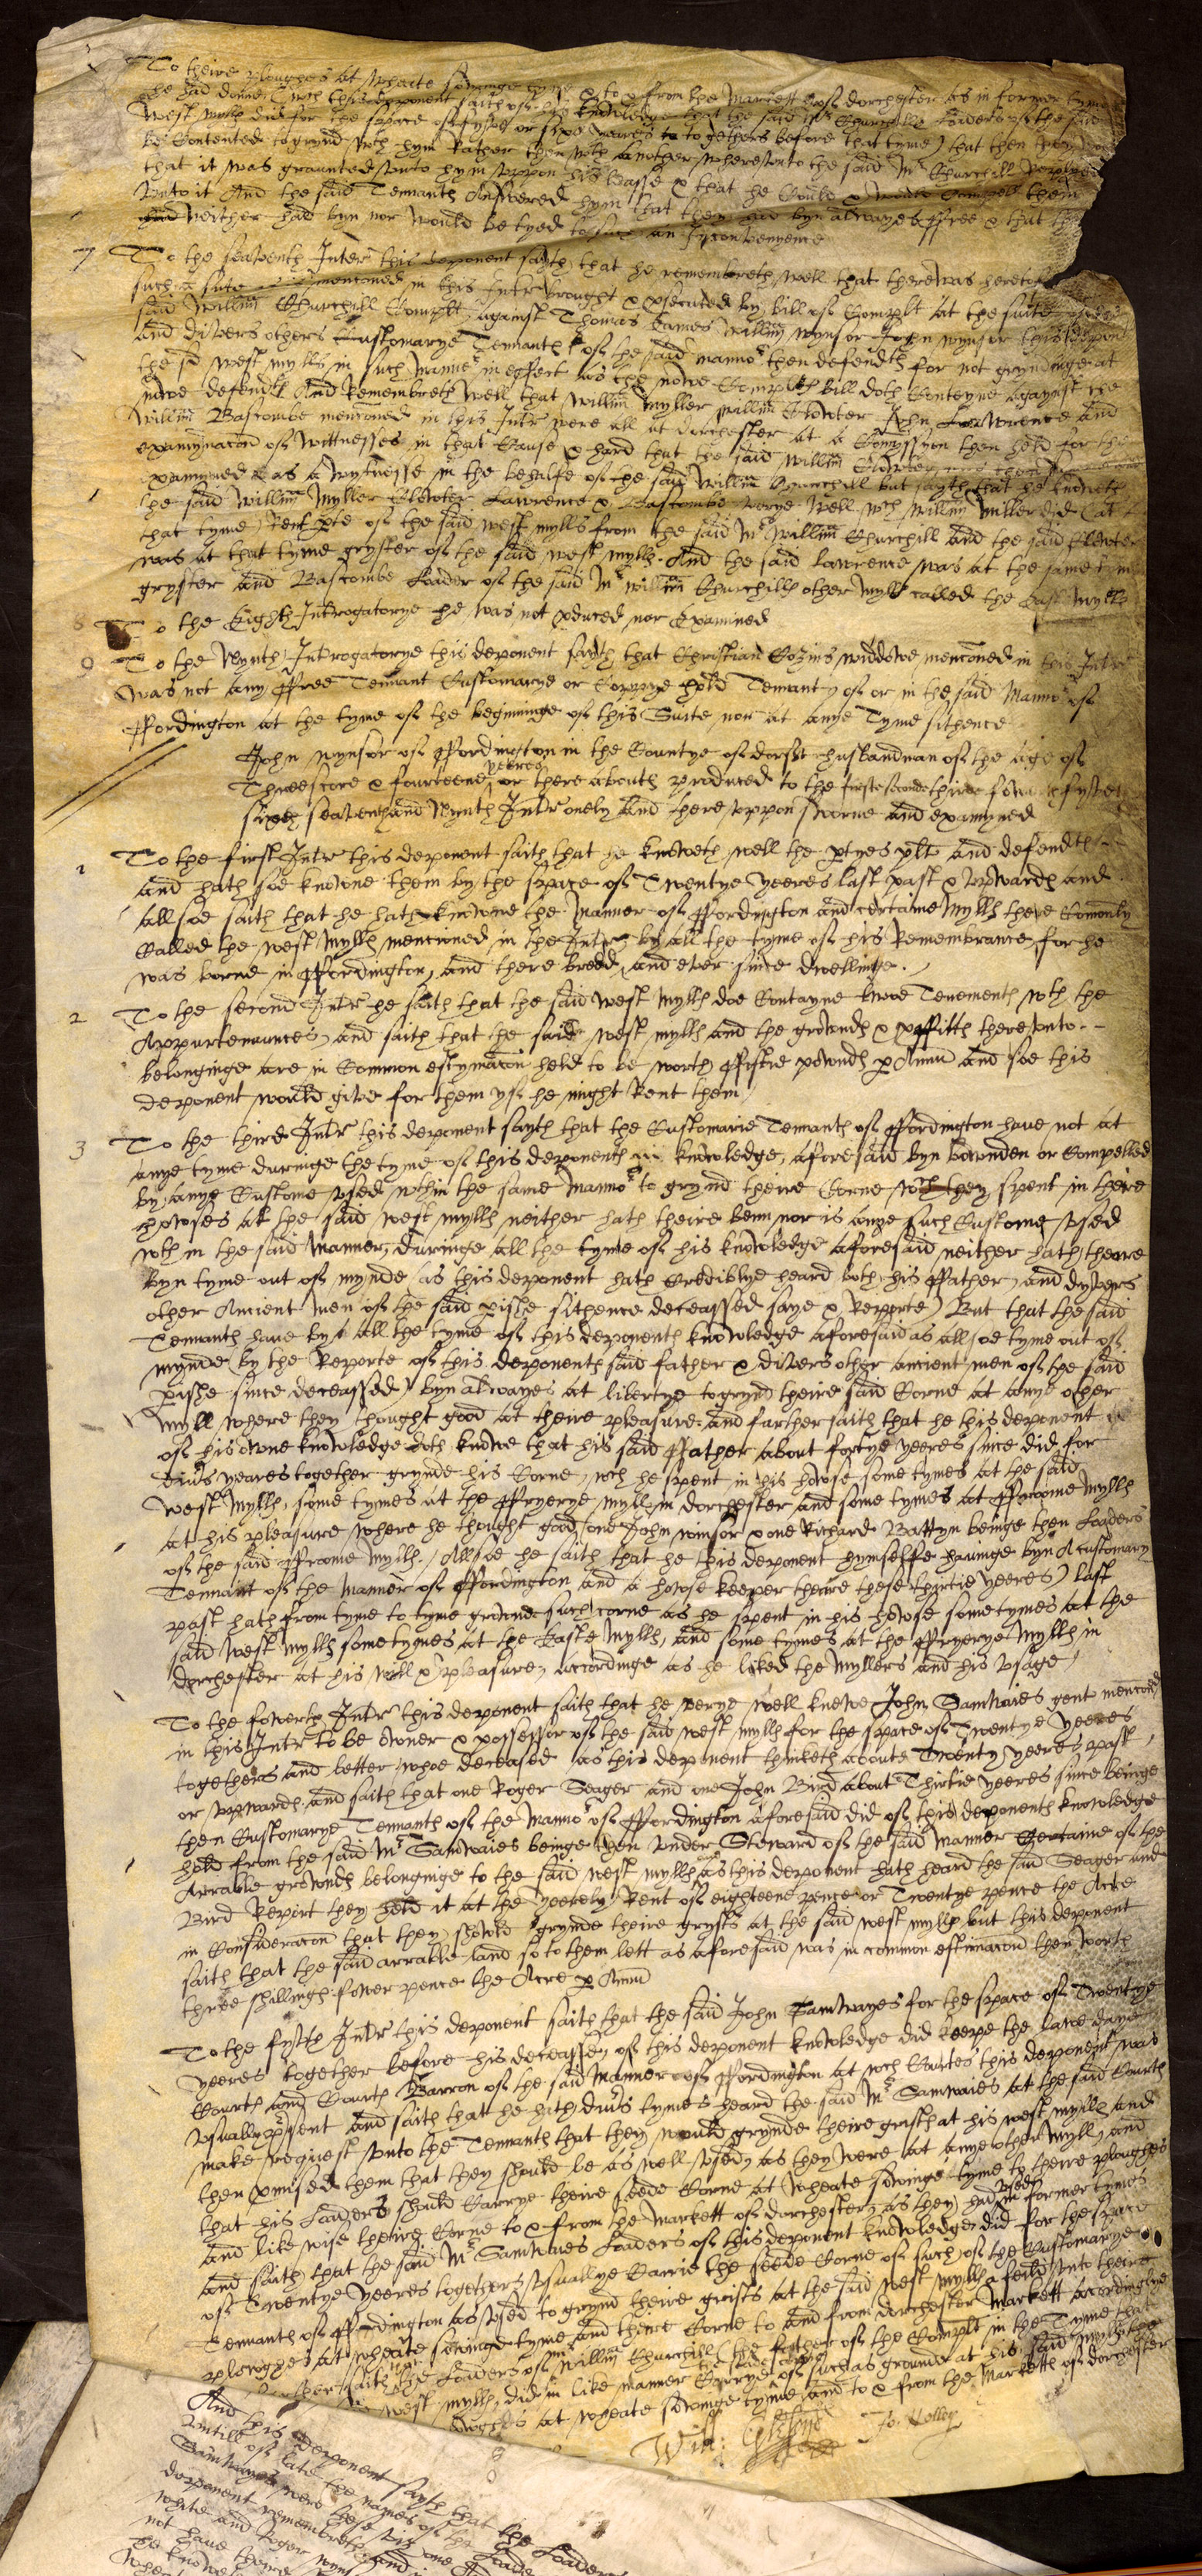 To theire ploughes at wheate sowinge tyme & to & from the Markett of dorchester as in former tymes
he had donne
West mylls did for the space of fyve or sixe yeares to togethers before that tyme) that then they
be Contented to grynd wth hym Rather then wth another wherevnto the said Mr Churchill Replyed
that it was graunted vnto hym vppon his Lease & that he Could & would Compell them
vnto it And the said Tennants Answered hym that they had byn alwayes ffree & that they
neither had byn nor would be tyed to such an Inconvenyence
7 To the seaventh Intr this deponent sayth that he remembreth well that there was heretofore
such a sute mencioned in this Intr brought & psecuted by bill of Complt at the suite of the
said Willm Churchill Complt against Thomas Eames Willm wynsor John wynsor this depont
and divers others Customarye Tennants of the said mannor then defendts for not gryndinge at
the sd west mylls in such manner in effect as the nowe Complts bill doth Conteyne against the
nowe defendts And Remembreth well that willm Myller willm Clowter John Lawrence and
Willm Bascombe mencioned in this Intr were all at dorchester at a Comyssyon then held for the
examynacon of wittnesses in that Cause & hard that the said willm Clowter was then
examyned as a wytnesse in the behalfe of the said willm Churchill but sayth that he knoweth
the said Willm Myller Clowter Lawrence & Bascombe verye well wch willm miller did (at
that tyme) Rent pte of the said west mylls from the said Mr Willm Churchill and the said Clowter
was at that tyme gryster of the said west mylls And the said Lawrence was at the same tyme
gryster and Bascombe Loader of the said Mr willm Churchills other mylls called the East Mylls
8 To the Eighth Introgatorye he was not pduced nor Examined
9 To the Nynth Intrrogatorye this deponent sayth that Christian Cozins widdowe mencioned in this Intr
was not any ffree Tennant Customarye or Coppye hold Tennant of or in the said Mannor of
ffordington at the tyme of the beginninge of this Suite nor at anye Tyme sithence
John wynsor of ffordington in the Countye of dorset husbandman of the age of
Threescore & fourteene yeeres or there abouts produced to the firste seconde thirde fowerth fyveth
sixth seaventh and Nynth Intr onely And there vppon sworne and examyned
1 To the first Intr this deponent saith that he knoweth well the ptyes plt and defendts
and hath soe knowne them by the space of Twentye yeeres last past & vpwards and
allsoe saith that he hath knowne the Manner of ffordington and certaine Mylls there Comonly
Called the west Mylls mencioned in the Intr by all the tyme of his Remembrance for he
was borne in ffordington, and there breed, and ever since dwellinge.
2 To the second Intr he saith that the said west Mylls doe Contayne twoe Tenements wth the
Appurtenaunces, and saith that the said west mylls and the grownds & pffitts there vnto
belonginge are in Common estymacon held to be worth ffiftie pownds p Annu and soe this
deponent would give for them yf he might Rent them
3 To the third Intr this deponent sayth that the Customarie Tennants of ffordington have not at
anye tyme duringe the tyme of this deponents knowledge aforesaid byn bownden or Compelled
by anye Custome vsed wthin the same Mannor to grynd theire Corne wch they spent in theire
howses at the said west mylls neither hath theire benn nor is anye such Custome vsed
wth in the said Manner, duringe all the tyme of his knowledge aforesaid neither hath theire
byn tyme out of mynde (as this deponent hath Crediblye heard both his ffather, and dyvers
other Ancient men of the said pishe sithence deceassed saye & Reporte) But that the said
Tennants have by all the tyme of this deponents knowledge aforesaid as allsoe tyme out of
mynde by the Reporte of this deponents said father & divers other ancient men of the said
pishe since deceassed) byn alwayes at libertye to grynd theire said Corne at anye other
Myll where they thought good at theire pleasure and farther saith that he this deponent
of his owne knowledge doth knowe that his said ffather about fortye yeeres since did for
divs yeares together grynde his Corne, wch he spent in his howse some tymes at the said
west Mylls, some tymes at the ffryerye myll in dorchester and some tymes at ffroome Mylls
at his pleasure, where he thought good, (one John winsor & one Richard Battyn beinge then Loaders
of the said ffroome Mylls.) Allsoe he saith that he this deponent hymselfe havinge byn A customary
Tennant of the Manner of ffordington and a howse keeper theire these thirtie yeeres) last
past hath from tyme to tyme grownd such corne as he spent in his howse sometymes at the
said west mylls some tymes at the Easte Mylls, and some tymes at the ffryerye Mylls in
dorchester at his will & pleasure, accordinge as he liked the myllers and his vsage
To the fowerth Intr this deponent saith that he verye well knewe John Samwaies gent mencioned
in this Intr to be owner & possessor of the said west mylls for the space of Twentye yeeres
togethers and better, whoe deceased as this deponent thinketh aboute Twenty yeeres past
or vpwards and saith that one Roger Seager and one John Bird about Thirtie yeeres since beinge
then Customarye Tennants of the Mannor of ffordington aforesaid did of this deponents knowledge
hold from the said Mr Samwaies beinge then vnder Steward of the said Manner Certaine of the
Arrable grownds belonginge to the said west mylls, and as this deponent hath heard the said Seager and
Bird Report they held it at the yeerely Rent of eighteene pence or Twentye pence the Acre
in Consideracon that they should grynde theire grysts at the said west mylls, but this deponent
saith that the said arrable land so to them lett as aforesaid was in common estimacon then worth
three shillings fower pence the Acre p Annu
To the fyfth Intr this deponent saith that the said John Samwayes for the space of Twentye
yeeres together before his deceasse of this deponents knowledge did keepe the lawe daye
Courts and Courts Barron of the said Manner of ffordington at wch Courtes this deponent was
vsually psent and saith that he hath divs tymes heard the said Mr Samwaies at the said Courts
make request vnto the Tennants that they would grynde theire grists at his west mylls and
then pmised them that they should be as well vsed, as they were at anye other Myll, and
that his Loaders should Carrye theire seede Corne at wheate sowinge tyme to theire ploughes
and likewise theire Corne to & from the Markett of dorchester, as they had in former tymes
and saith that the said Mr Samwaies Loaders of this deponents knowledge did for the space
of Twentye yeeres together, vsuallye Carrie the seede Corne of such of the Customarye
Tennants of ffordington as vsed to grynd theire grists at the said west mylls a feild vnto theire
ploughes at wheate sowinge tyme and theire Corne to and from dorchester Markett accordinglye
saith the Loaders of Mr willm Churchill the father of the Complt in the Tyme that
west mylls, did in like manner Carrye the seede Corne of such as grownd at his said mylls
at wheate sowinge tyme and to & from the Marketts of dorchester
Will:
Jo. Colley
And this deponent sayth that the Loaders
vntill of late the names of the Loaders
Samwayes were these viz one
deponent remembreth and
white and Roger wyns
not have theire
he knowe